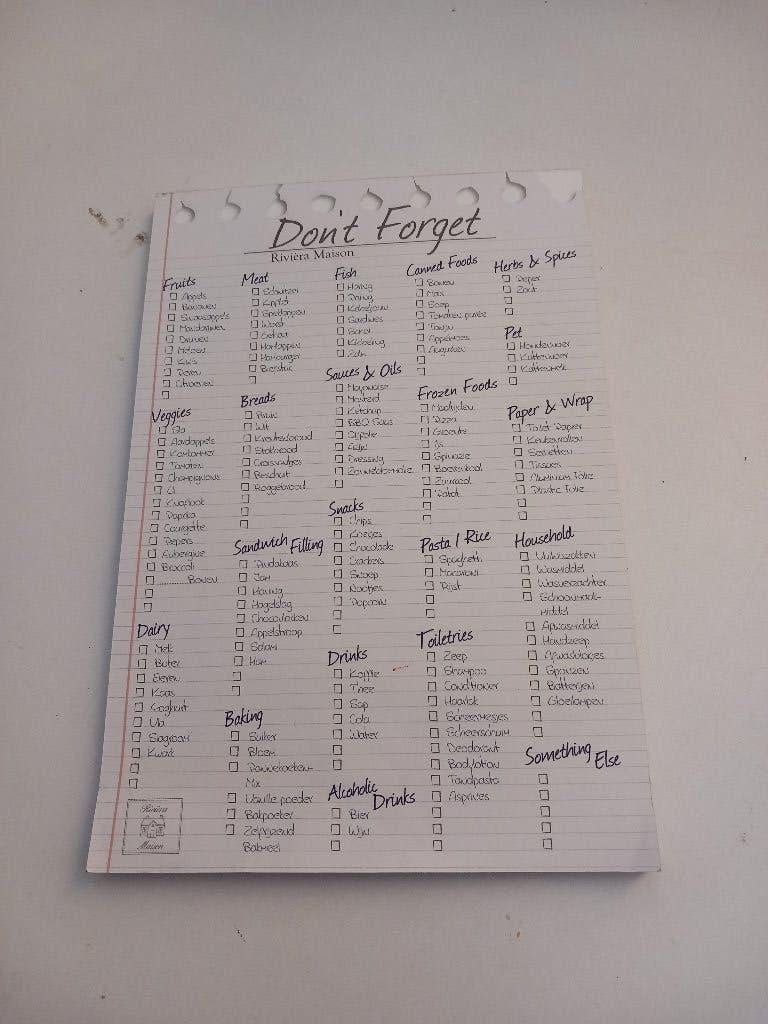 Don't Forget
Rivièra Maison
Fruits
Appels
Bananen
Sinaasappels
Mandarijnen
Druiven
Meloen
Kiwi's
Peren
Citroenen
Veggies
Sla
Aardappels
Komkommer
Tomaten
Champignons
Ui
Knoflook
Paprika
Courgette
Pepers
Aubergine
Broccoli
............ Bonen
Dairy
Melk
Boter
Eieren
Kaas
Yoghurt
Vla
Slagroom
Kwark
Rivièra
Maison
Meat
Schnitzel
Kipfilet
Speklappen
Worst
Gehakt
Hamlappen
Hamburger
Biefstuk
Breads
Bruin
Wit
Kruidenbrood
Stokbrood
Croissantjes
Beschuit
Roggebrood
Sandwich Filling
Pindakaas
Jam
Honing
Hagelslag
Chocovlokken
Appelstroop
Salami
Ham
Baking
Suiker
Bloem
Pannekoeken-
Mix
Vanille poeder
Bakpoeder
Zelfrijzend
Bakmeel
Fish
Haring
Paling
Kabeljauw
Sardines
Kibbeling
Zalm
Sauces & Oils
Mayonaise
Mosterd
Ketchup
BBQ Saus
Olijfolie
Azijn
Dressing
Zonnebloemolie
Snacks
Chips
Koekjes
Chocolade
Crackers
Snoep
Nootjes
Popcorn
Drinks
Koffie
Thee
Sap
Cola
Water
Alcoholic
Drinks
Bier
Wijn
Canned Foods
Bonen
Mais
Soep
Tomaten puree
Tonijn
Appelmoes
Augurken
Frozen Foods
Maaltijden
Pizza
Groente
IJs
Spinazie
Boerenkool
Zuurkool
Patat
Pasta / Rice
Spaghetti
Macaroni
Rijst
Toiletries
Zeep
Shampoo
Conditioner
Haarlak
Scheermesjes
Scheerschuim
Deodorant
Bodylotion
Tandpasta
Asprines
Herbs & Spices
Peper
Zout
Pet
Hondenvoer
Kattenvoer
Kattenmelk
Paper & Wrap
Toilet Papier
Keukenrollen
Servetten
Tissues
Aluminium Folie
Plastic Folie
Household
Vuilniszakken
Wasmiddel
Wasverzachter
Schoonmaak-
middel
Afwasmiddel
Handzeep
Afwasblokjes
Sponzen
Batterijen
Gloeilampen
Something
Else